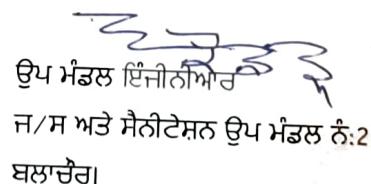 ਉਪ ਮੰਡਲ ਇੰਜੀਨੀਅਰ
ਜ/ਸ ਅਤੇ ਸੈਨੀਟੇਸ਼ਨ ਉਪ ਮੰਡਲ ਨੰ:2
ਬਲਾਚੌਰ।